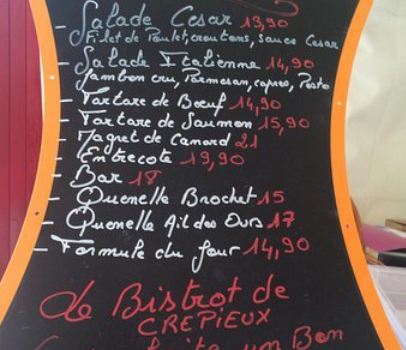 - Salade Cesar 13,90
Filet de Poulet, croutons, sauce Cesar
- Salade Italienne 14,90
Jambon cru, Parmesan, capres, Pesto
- Tartare de Bœuf 14,90
- Tartare de Saumon 15,90
- Magret de Canard 21
- Entrecote 19,90
- Bar 18
- Quenelle Brochet 15
- Quenelle Ail des Ours 17
- Formule du Jour 14,90
Le Bistrot de
CREPIEUX
un Bon